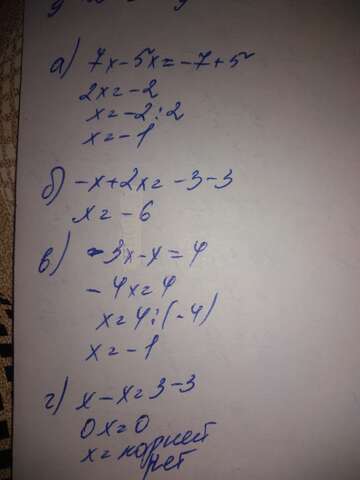 а) 7x-5x=-7+5
2x=-2
x=-2:2
x=-1
б) -x+2x=-3-3
x=-6
в) -3x-x=4
-4x=4
x=4:(-4)
x=-1
г) x-x=3-3
0x=0
x=корней
нет